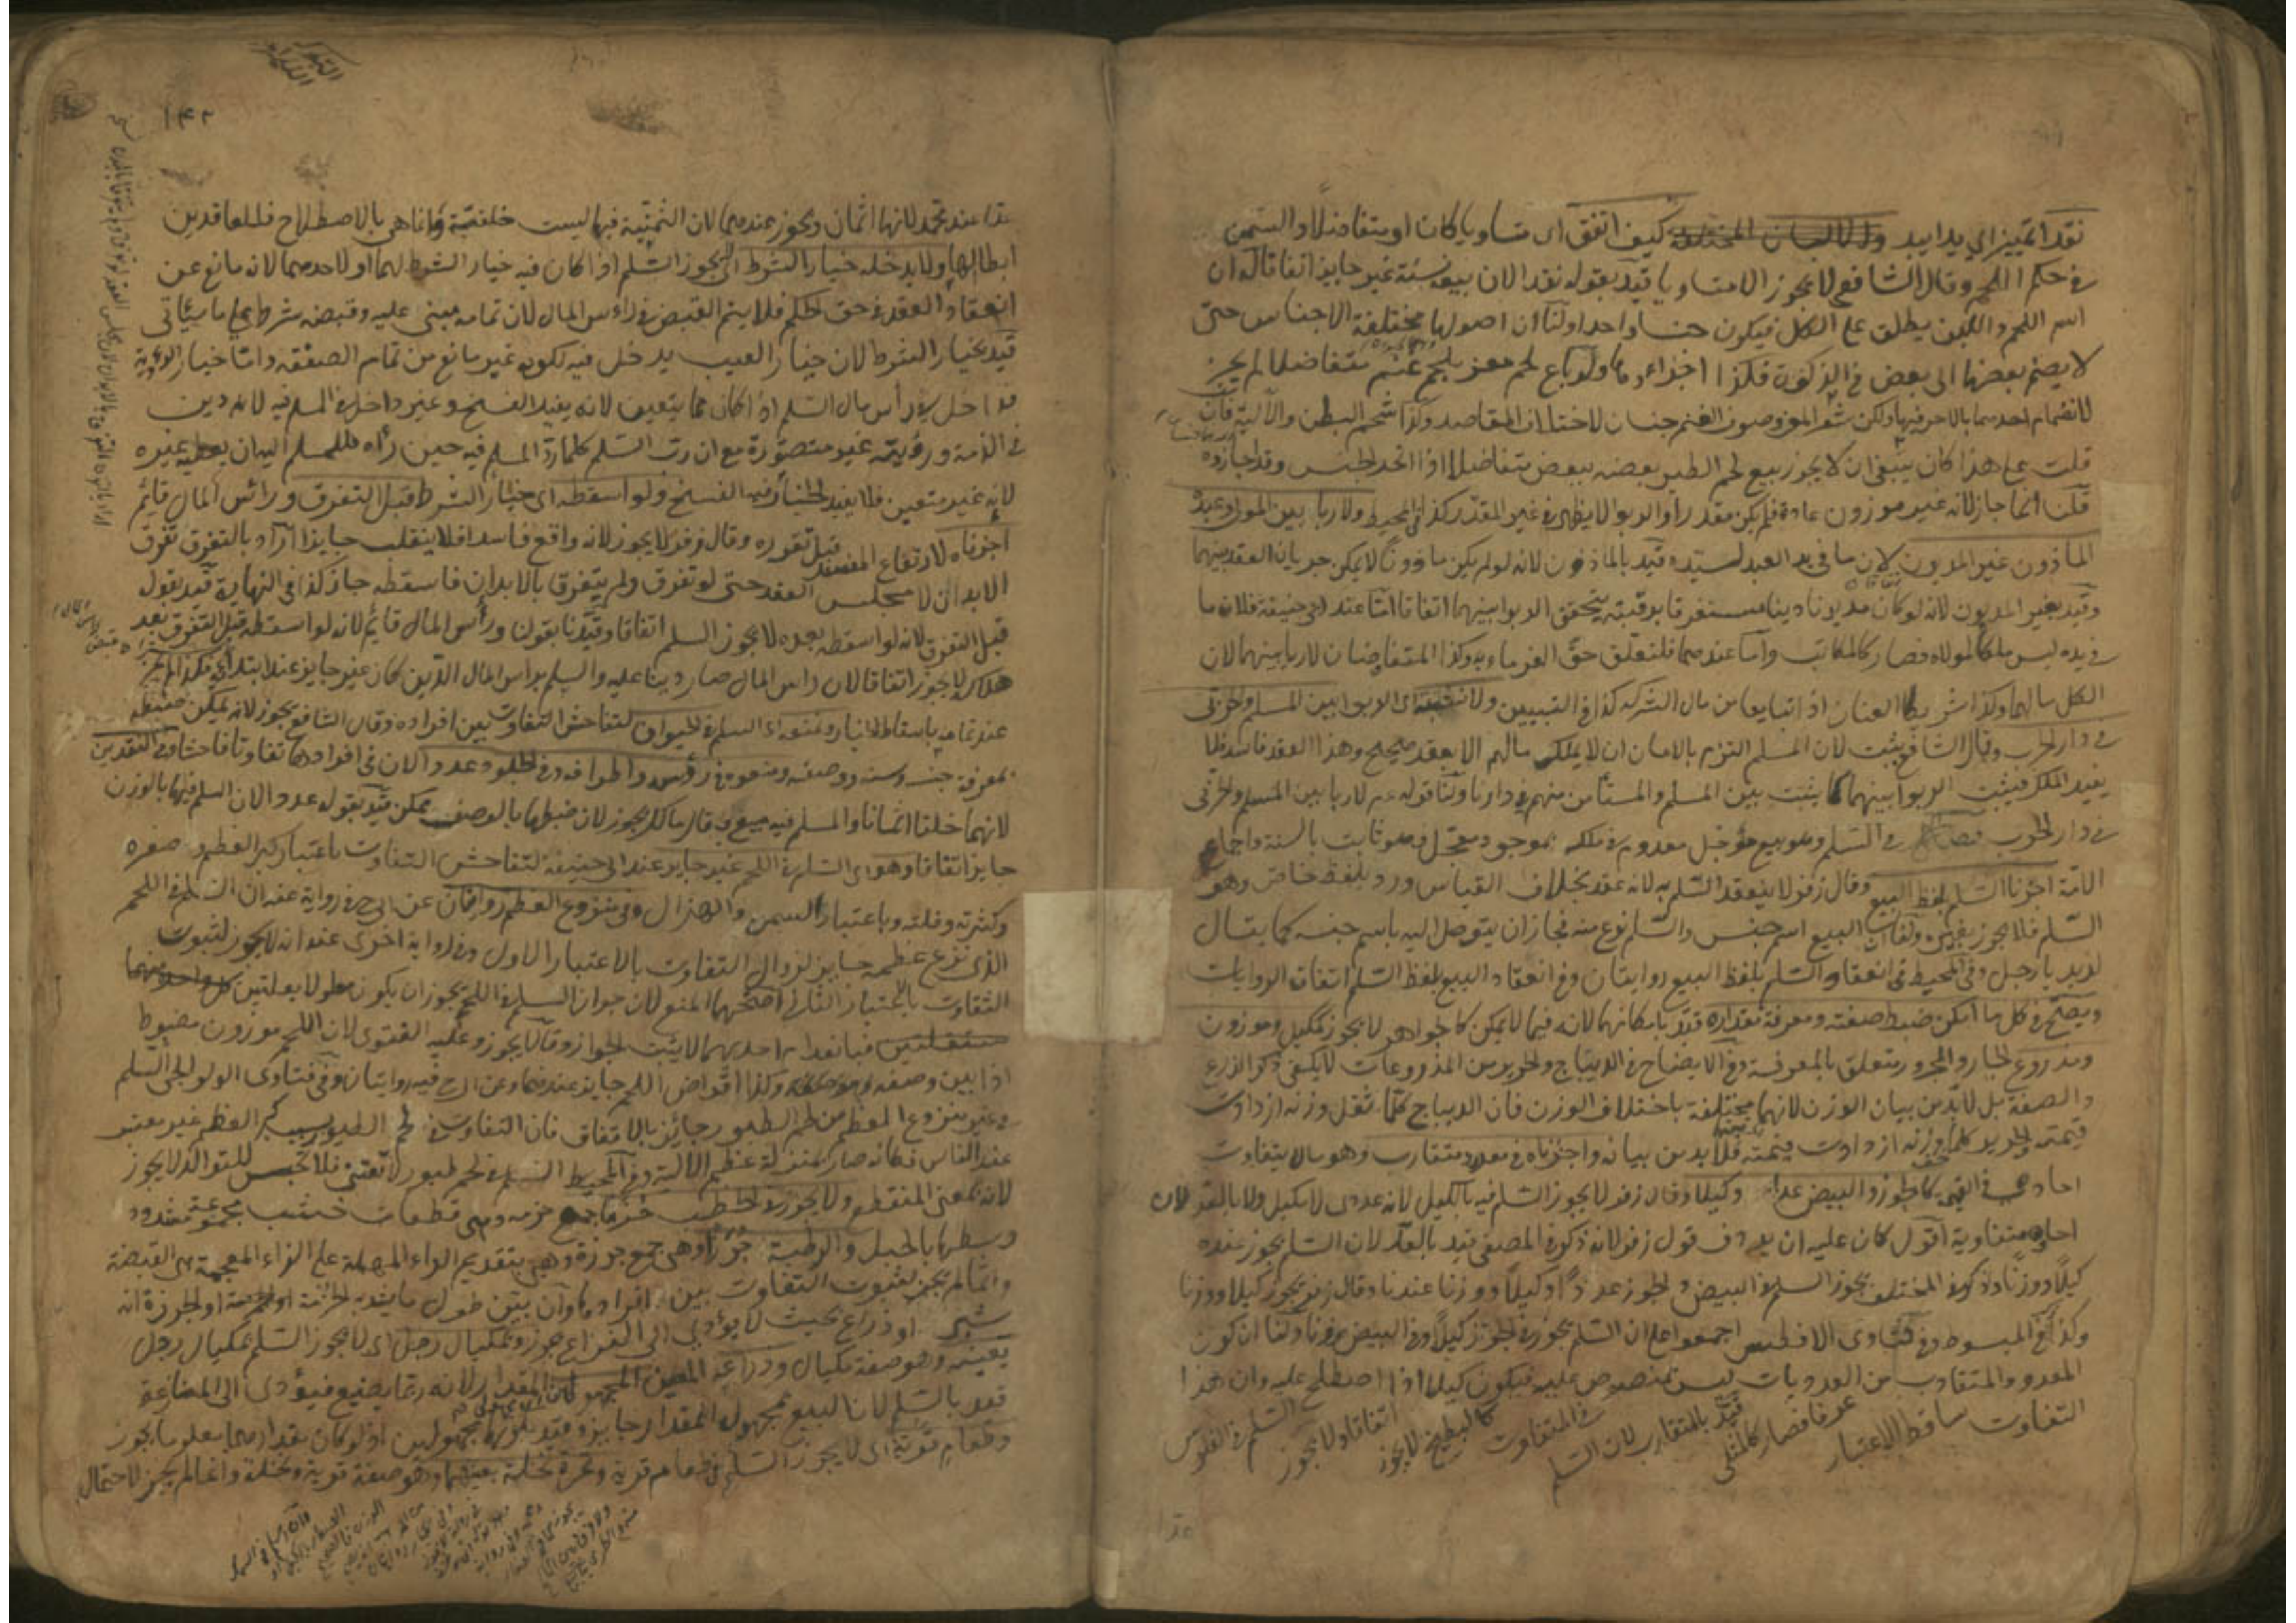 نقدا تمييز اي يدا بيد كيف اتفق اى متساويا كان او متفاضلا والسمن
في حكم اللحم وقال الشافعي لا يجوز الا متساويا قيد بقوله نقدا لان بيعه نسئة غير جايز اتفاقا له ان
اسم اللحم واللبن يطلق على الكل فيكون جنسا واحدا ولنا ان اصولها مختلفة الاجناس حتى
لا يضم بعضها الى بعض في الزكوة فكذا اجزاءها ولو باع لحم معز بلحم غنم متفاضلا لم يجز
لانضمام احدهما بالاخر فيها ولكن شعر المعز وصوف الغنم جنسان لاختلاف المقاصد وكذا شحم البطن والالية فان
قلت على هذا كان ينبغي ان لا يجوز بيع لحم الطير بعضه ببعض متفاضلا اذا اتحد الجنس وقد اجازوه
قلنا انما جاز لانه غير موزون عادة فلم يكن مقدرا والربوا لا يظهر في غير المقدر كذا في المحيط ولا ربا بين المولى وعبده
الماذون غير المديون لان ما في يد العبد لسيده قيد بالماذون لانه لو لم يكن ماذونا لا يمكن جريان العقد بينهما
وقيد بغير المديون لانه لو كان مديونا دينا مستغرقا برقبته يتحقق الربوا بينهما اتفاقا اما عند ابي حنيفة فلان ما
في يده ليس ملكا لمولاه فصار كالمكاتب واما عندهما فلتعلق حق الغرماء به وكذا المتفاوضان لا ربا بينهما لان
الكل مالهما وكذا شريكا العنان اذا تبايعا من مال الشركة كذا في التبيين ولا نثبته اى الربوا بين المسلم والحربي
في دار الحرب وقال الشافعي يثبت لان المسلم التزم بالامان ان لا يملك مالهم الا بعقد صحيح وهذا العقد فاسد فلا
يفيد الملك فيثبت الربوا بينهما كما يثبت بين المسلم والمستامن منهم في دارنا ولنا قوله عم لا ربا بين المسلم والحربي
في دار الحرب فصل في السلم وهو بيع مؤجل معدوم في ملكه بموجود معجل وهو ثابت بالسنة واجماع
الامة اجزنا السلم بلفظ البيع وقال زفر لا ينعقد السلم به لانه عقد بخلاف القياس ورد بلفظ خاص وهو
السلم فلا يجوز بغيره ولنا ان البيع اسم جنس والسلم نوع منه فجاز ان يتوصل اليه باسم جنسه كما يقال
لزيد يا رجل وفي المحيط في انعقاد السلم بلفظ البيع روايتان وفي انعقاد البيع بلفظ السلم اتفاق الروايات
ويصح في كل ما امكن ضبط صفته ومعرفة مقداره قيد بامكانهما لانه فيما لا يمكن كالجواهر لا يجوز كمكيل وموزون
ومذروع الجار والمجرور متعلق بالمعرفة وفي الايضاح في الديباج والحرير من المذروعات لا يكفي ذكر الذرع
والصفة بل لا بد من بيان الوزن لانها مختلفة باختلاف الوزن فان الديباج كلما ثقل وزنه ازدادت
قيمته والحرير كلما خف وزنه ازدادت قيمته فلا بد من بيانه واجزناه في معدود متقارب وهو ما لا يتفاوت
احاده في القيمة كالجوز والبيض عدا وكيلا وقال زفر لا يجوز السلم فيه بالكيل لانه عددى لا مكيل ولا بالعد لان
احاده متفاوتة اقول كان عليه ان يردف قول زفر لانه ذكر في المصفى قيد بالعد لان السلم يجوز عنده
كيلا ووزنا وذكر في المختلف يجوز السلم في البيض والجوز عددا وكيلا ووزنا عندنا وقال زفر يجوز كيلا ووزنا
وكذا في المبسوط وفي فتاوى الافطس اجمعوا على ان السلم يجوز في الجوز كيلا وفي البيض وزنا ولنا ان كون
المعدود المتقارب من العدديات ليس بمنصوص عليه فيكون كيلا اذا اصطلح عليه وان هذا
التفاوت ساقط الاعتبار عرفا فصار كالمثلي قيد بالمتقارب لان السلم في المتفاوت كالبطيخ لا يجوز اتفاقا ولا يجوز السلم في الفلوس
عدا
١٤٢
عدا عند محمد لانها اثمان ويجوز عندهما لان الثمنية فيها ليست خلقية وانما هي بالاصطلاح فللعاقدين
ابطالها ولا يدخله خيار الشرط اى لا يجوز السلم اذا كان فيه خيار الشرط لهما او لاحدهما لانه مانع عن
انعقاد العقد في حق الحكم فلا يتم القبض في راس المال لان تمامه مبنى عليه وقبضه شرط على ما سيأتي
قيد بخيار الشرط لان خيار العيب يدخل فيه لكونه غير مانع من تمام الصفقة واما خيار الرؤية
فداخل في رأس مال السلم اذا كان مما يتعين لانه يفيد الفسخ وغير داخل في المسلم فيه لانه دين
في الذمة ورؤيته غير متصورة مع ان رب السلم كلما رد المسلم فيه حين رأه للمسلم اليه ان يعطيه غيره
لانه غير متعين فلا يفيد الخيار فيه الفسخ ولو اسقطه اى خيار الشرط قبل التفرق ورائس المال قائم
اجزناه لارتفاع المفسد قبل تقرره وقال زفر لا يجوز لانه واقع فاسدا فلا ينقلب جايزا اراد بالتفرق تفرق
الابدان لا مجلس العقد حتى لو تفرق ولم يتفرق بالابدان فاسقطه جاز كذا في النهاية قيد بقوله
قبل التفرق لانه لو اسقطه بعده لا يجوز السلم اتفاقا وقيدنا بقولنا ورأس المال قايم لانه لو اسقطه قبل التفرق بعد
هلاكه لا يجوز اتفاقا لان راس المال صار دينا عليه والسلم براس المال الدين كان غير جايز عند ابتدائه فكذا لم يجز
عند تمامه باسقاط الخيار ونمنعه اى السلم في الحيوان لتفاحش التفاوت بين افراده وقال الشافعي يجوز لانه يمكن ضبطه
بمعرفة جنسه وسنه ووصفه ومنعوه في رؤسه واطرافه وفي الجلود عددا لان في افرادها تفاوتا فاحشا وفي النقدين
لانهما خلقا اثمانا والمسلم فيه مبيع وقال مالك يجوز لان ضبطها بالوصف يمكن قيد بقوله عددا لان السلم فيها بالوزن
جايز اتفاقا وهو اى السلم في اللحم غير جايز عند ابي حنيفة لتفاحش التفاوت باعتبار كبر العظم وصغره
وكثرته وقلته وباعتبار السمن والهزال وفي منزوع العظم روايتان عن ابي ح في رواية عنه ان السلم في اللحم
الذى نزع عظمه جايز لزوال التفاوت بالاعتبار الاول وفي رواية اخرى عنه انه لا يجوز لثبوت
التفاوت بالاعتبار الثاني اصحهما المنع لان جواز السلم في اللحم يجوز ان يكون معلولا بعلتين
فبانعدام احديهما لا يثبت الجواز وقالا يجوز وعليه الفتوى لان اللحم موزون مضبوط
اذا بين وصفه وموضعه وكذا اقراض اللحم جايز عندهما وعن ابي ح فيه روايتان وفي فتاوى الولوالجي السلم
في غير منزوع العظم من لحم الطيور جائز بالاتفاق فان التفاوت في لحم الطيور بسبب كبر العظم غير معتبر
عند الناس فكانه صار بمنزلة عظم الالية وفي المحيط السلم في لحم طيور لا تقتنى فلا تحبس للتوالد لا يجوز
لانه بمعنى المنقطع ولا يجوز في الحطب حزما جمع حزمه وهي قطعات خشب مجموعة مشدود
وسطها بالحبل والرطبة جرزا وهي جمع جرزة وهي بتقديم الراء المهملة على الزاء المعجمة هي القبضة
وانما لم يجز لثبوت التفاوت بين افرادها وان بين طول ما يشد به الحزمة او الجرزة انه
شبر او ذراع بحيث لا يؤدي الى النزاع جوز وبمكيال رجل اى لا يجوز السلم بمكيال رجل
بعينه وهو صفة مكيال وذراعه المعين المجهول المقدار لانه ربما يضيع فيؤدى الى المنازعة
قيد بالسلم لان البيع بمجهول المقدار جايز وقيد بكونهما مجهولين اذ لو كان مقدارهما معلوما يجوز
وطعام قرية اى لا يجوز السلم في طعام قرية وثمرة نخلة بعينها وهو صفة قرية ونخلة وانما لم يجز لاحتمال